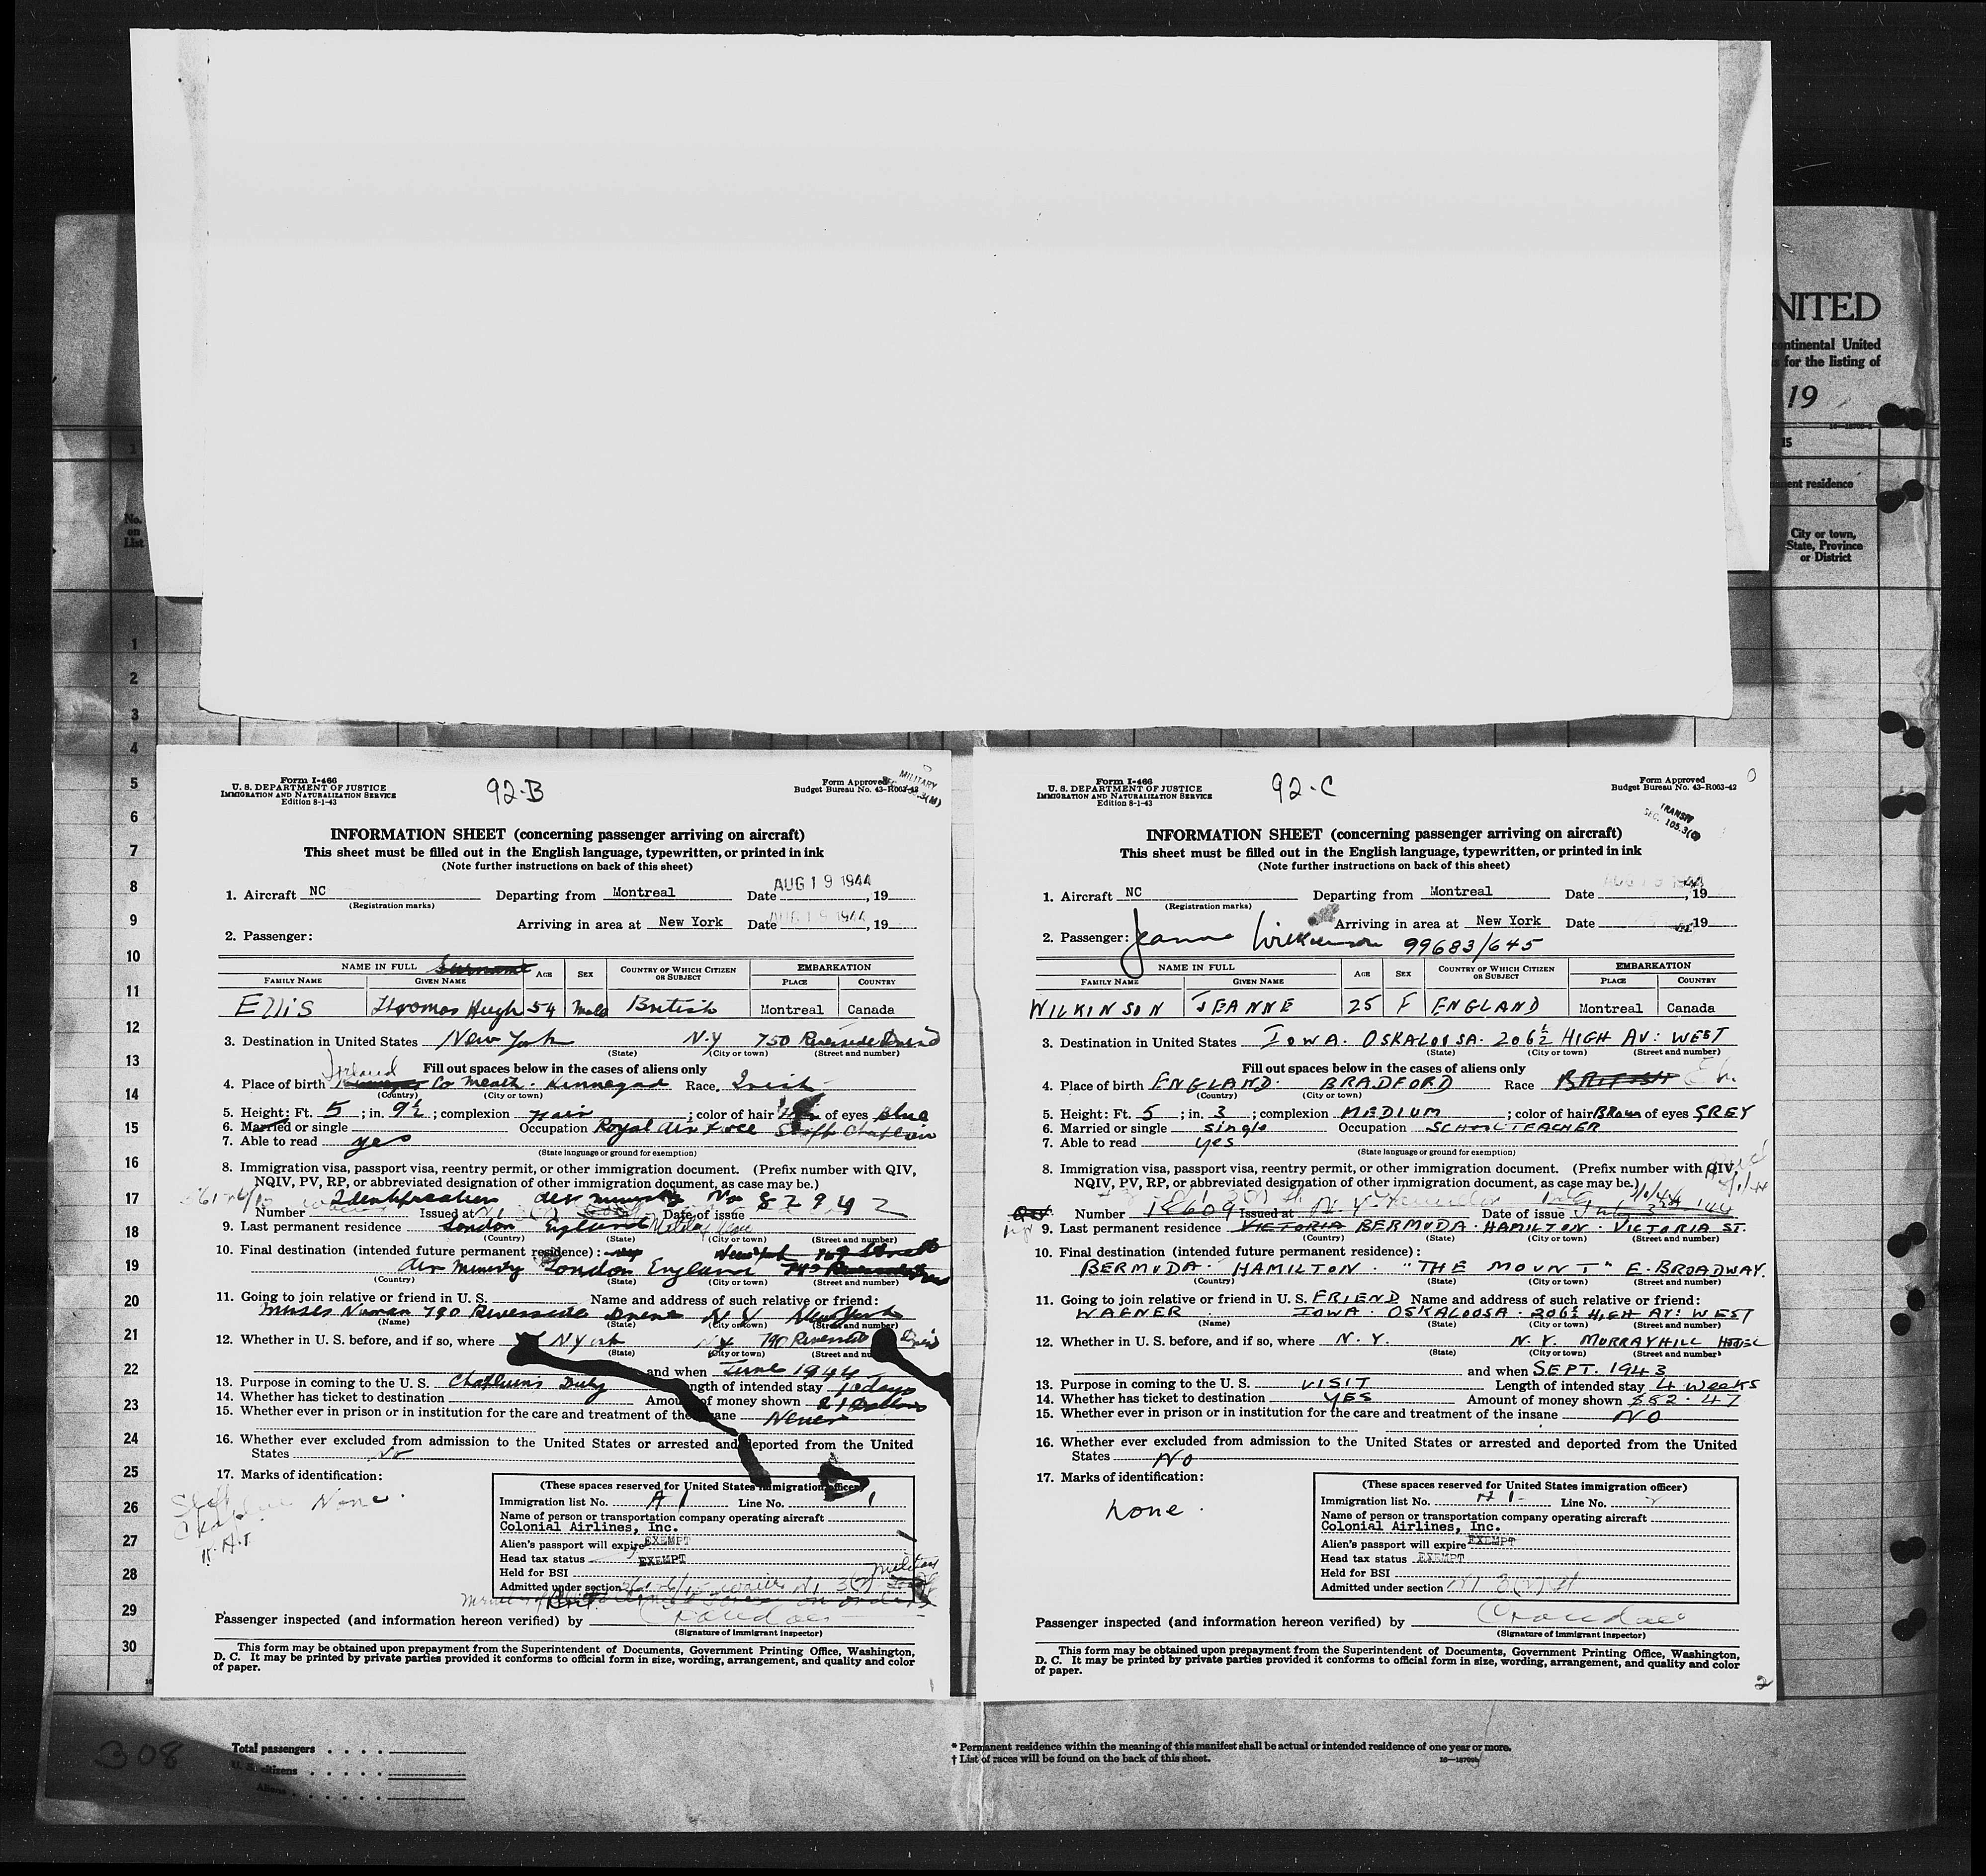 NITED
continental United
for the listing of
19
15
residence
City or town,
State, Province
or District
No.
on
List
1
2
3
4
5
6
7
8
9
10
11
12
13
14
15
16
17
18
19
20
21
22
23
24
25
26
27
28
29
30
Form I-466
U. S. DEPARTMENT OF JUSTICE
IMMIGRATION AND NATURALIZATION SERVICE
Edition 8-1-43
92-B
Form Approved
Budget Bureau No. 43-R063-42
MILITARY
INFORMATION SHEET (concerning passenger arriving on aircraft)
This sheet must be filled out in the English language, typewritten, or printed in ink
(Note further instructions on back of this sheet)
1. Aircraft NC Departing from Montreal Date AUG 19 1944, 19
(Registration marks)
Arriving in area at New York Date AUG 19 1944, 19
2. Passenger:
NAME IN FULL Surname AGE SEX COUNTRY OF WHICH CITIZEN OR SUBJECT EMBARKATION
FAMILY NAME GIVEN NAME PLACE COUNTRY
Ellis Thomas Hugh 54 Male British Montreal Canada
3. Destination in United States New York N.Y 750 Riverside Drive
(State) (City or town) (Street and number)
Fill out spaces below in the cases of aliens only
4. Place of birth Ireland Co Meath. Kinnegad Race, Irish
(Country) (City or town)
5. Height: Ft. 5; in. 9½; complexion Fair; color of hair of eyes blue
6. Married or single Occupation Royal Air Force Staff Chaplain
7. Able to read yes
(State language or ground for exemption)
8. Immigration visa, passport visa, reentry permit, or other immigration document. (Prefix number with QIV,
NQIV, PV, RP, or abbreviated designation of other immigration document, as case may be.)
Identification Air Ministry No 82942
Number Issued at Date of issue
9. Last permanent residence London England
(Country) (State) (City or town) (Street and number)
10. Final destination (intended future permanent residence): New York
Air Ministry London England
(Country) (State) (City or town) (Street and number)
11. Going to join relative or friend in U. S. Name and address of such relative or friend:
Moses Noonan 790 Riverside Drive N Y New York
(Name) (State) (City or town) (Street and number)
12. Whether in U. S. before, and if so, where N York N.Y 790 Riverside Drive
(State) (City or town) (Street and nu
and when June 1944
13. Purpose in coming to the U. S. Chaplains Duty ngth of intended stay 10 days
14. Whether has ticket to destination Amou of money shown 21 Dollars
15. Whether ever in prison or in institution for the care and treatment of the ane Never
16. Whether ever excluded from admission to the United States or arrested and deported from the United
States No
17. Marks of identification:
None.
Staff
Chaplain
R.A.F.
(These spaces reserved for United States immigration officer)
Immigration list No. A 1 Line No. 1
Name of person or transportation company operating aircraft
Colonial Airlines, Inc.
Alien's passport will expire EXEMPT
Head tax status EXEMPT
Held for BSI
Admitted under section
Passenger inspected (and information hereon verified) by
(Signature of immigrant inspector)
This form may be obtained upon prepayment from the Superintendent of Documents, Government Printing Office, Washington,
D. C. It may be printed by private parties provided it conforms to official form in size, wording, arrangement, and quality and color
of paper.
1
Form I-466
U. S. DEPARTMENT OF JUSTICE
IMMIGRATION AND NATURALIZATION SERVICE
Edition 8-1-43
92-C
Form Approved
Budget Bureau No. 43-R063-42
TRANSIT
SEC. 105.3(
INFORMATION SHEET (concerning passenger arriving on aircraft)
This sheet must be filled out in the English language, typewritten, or printed in ink
(Note further instructions on back of this sheet)
1. Aircraft NC Departing from Montreal Date, 19
(Registration marks)
Arriving in area at New York Date 19
2. Passenger: Jeanne Wilkinson 99683/645
NAME IN FULL AGE SEX COUNTRY OF WHICH CITIZEN OR SUBJECT EMBARKATION
FAMILY NAME GIVEN NAME PLACE COUNTRY
WILKINSON JEANNE 25 F ENGLAND Montreal Canada
3. Destination in United States IOWA. OSKALOOSA. 206½ HIGH AV: WEST
(State) (City or town) (Street and number)
Fill out spaces below in the cases of aliens only
4. Place of birth ENGLAND. BRADFORD Race BRITISH
(Country) (City or town)
5. Height: Ft. 5; in. 3; complexion MEDIUM; color of hair BROWN of eyes GREY
6. Married or single single Occupation SCHOOLTEACHER
7. Able to read yes
(State language or ground for exemption)
8. Immigration visa, passport visa, reentry permit, or other immigration document. (Prefix number with QIV,
NQIV, PV, RP, or abbreviated designation of other immigration document, as case may be.)
Number 18609 Issued at Date of issue
9. Last permanent residence VICTORIA BERMUDA. HAMILTON. VICTORIA ST.
(Country) (State) (City or town) (Street and number)
10. Final destination (intended future permanent residence):
BERMUDA. HAMILTON. "THE MOUNT" E. BROADWAY.
(Country) (State) (City or town) (Street and number)
11. Going to join relative or friend in U. S. FRIEND Name and address of such relative or friend:
WAGNER IOWA. OSKALOOSA. 206½ HIGH AV: WEST
(Name) (State) (City or town) (Street and number)
12. Whether in U. S. before, and if so, where N.Y. N.Y. MURRAY HILL HOTEL
(State) (City or town) (Street and number)
and when SEPT. 1943
13. Purpose in coming to the U. S. VISIT Length of intended stay 4 weeks
14. Whether has ticket to destination YES Amount of money shown $82.47
15. Whether ever in prison or in institution for the care and treatment of the insane NO
16. Whether ever excluded from admission to the United States or arrested and deported from the United
States NO
17. Marks of identification:
none.
(These spaces reserved for United States immigration officer)
Immigration list No. A 1 Line No. 2
Name of person or transportation company operating aircraft
Colonial Airlines, Inc.
Alien's passport will expire EXEMPT
Head tax status EXEMPT
Held for BSI
Admitted under section
Passenger inspected (and information hereon verified) by
(Signature of immigrant inspector)
This form may be obtained upon prepayment from the Superintendent of Documents, Government Printing Office, Washington,
D. C. It may be printed by private parties provided it conforms to official form in size, wording, arrangement, and quality and color
of paper.
2
308
Total passengers
U. S. citizens
Aliens
* Permanent residence within the meaning of this manifest shall be actual or intended residence of one year or more.
† List of races will be found on the back of this sheet.